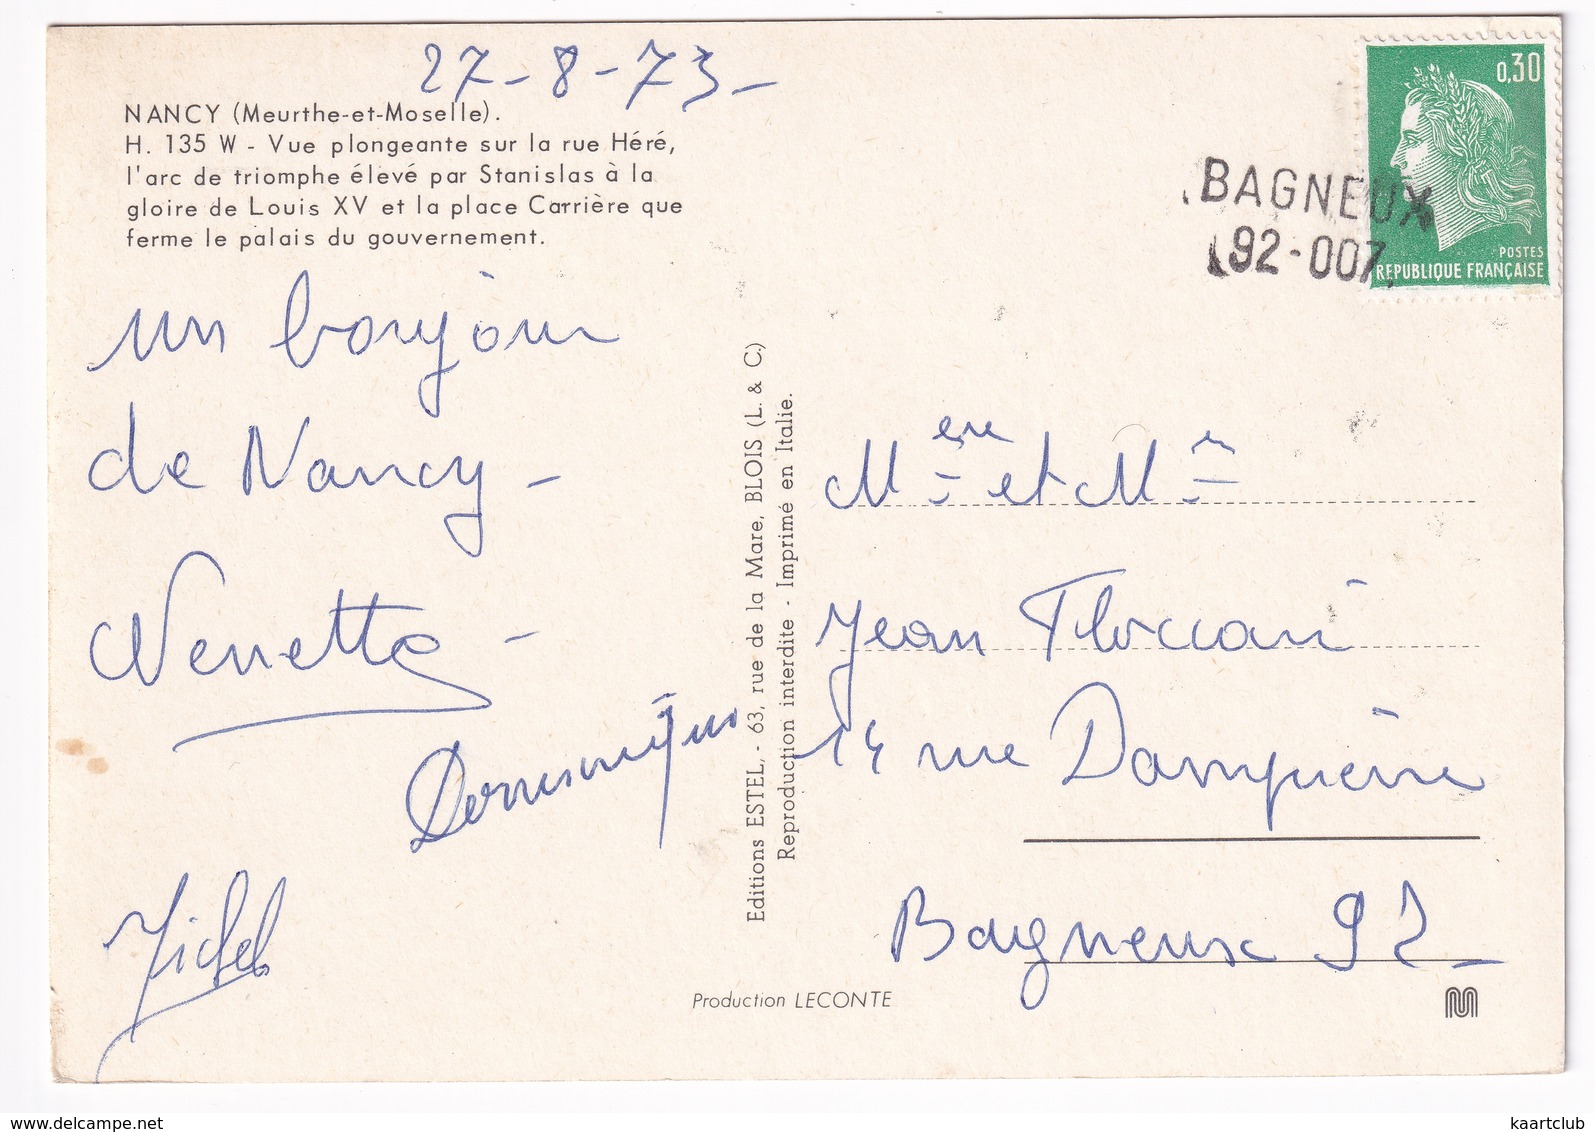 27-8-73-
NANCY (Meurthe-et-Moselle).
H. 135 W - Vue plongeante sur la rue Héré,
l'arc de triomphe élevé par Stanislas à la
gloire de Louis XV et la place Carrière que
ferme le palais du gouvernement.
un bonjour
de Nancy -
Nenette -
Dominique
Michel
Editions ESTEL, - 63, rue de la Mare, BLOIS (L. & C.)
Reproduction interdite - Imprimé en Italie.
Production LECONTE
0,30
POSTES
REPUBLIQUE FRANÇAISE
BAGNEUX
92-007
et
Jean
14 rue Dampierre
Bagneux 92-
kaartclub